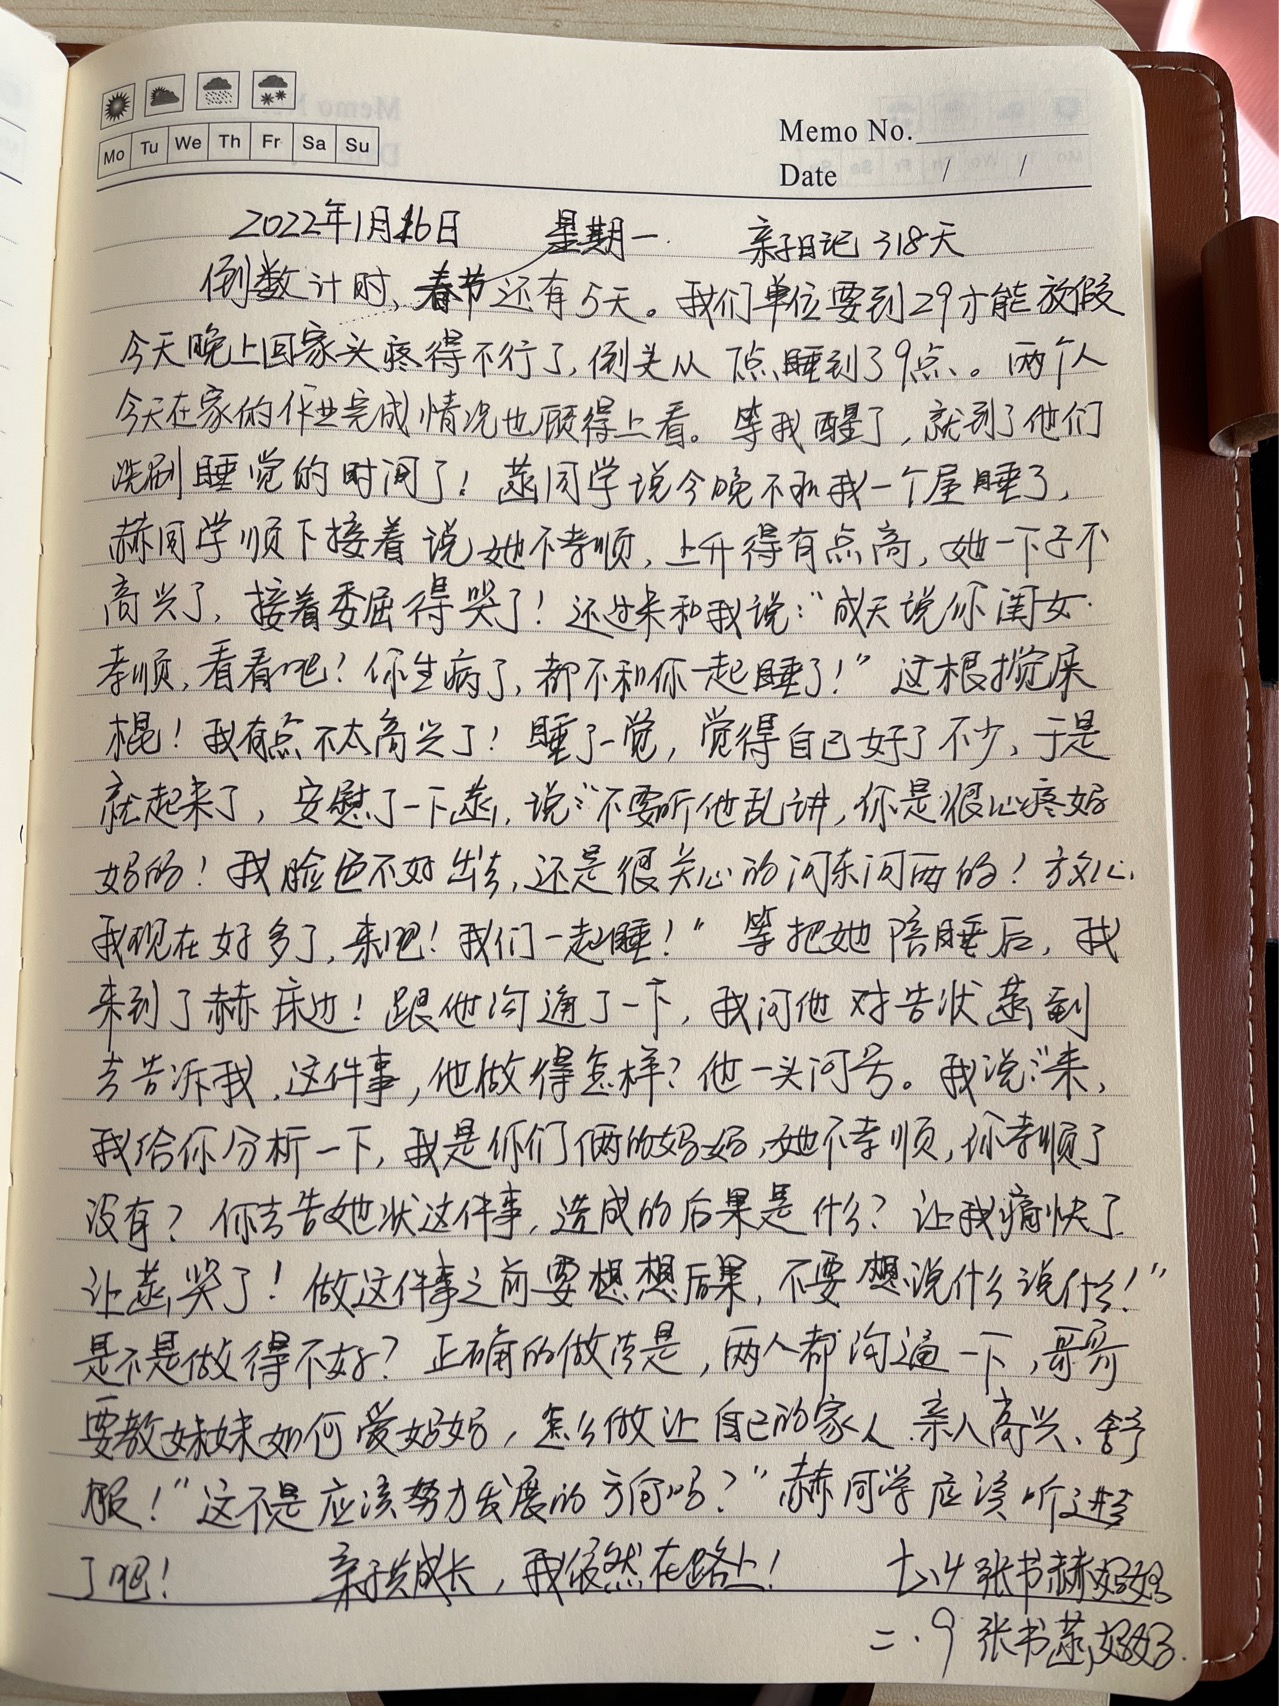 Mo Tu We Th Fr Sa Su
Memo No.
Date / /
2022年1月26日 星期一 亲子日记 318天
倒数计时、春节还有5天。我们单位要到29才能放假
今天晚上回家头疼得不行了,倒头从7点睡到了9点。两个人
今天在家的作业完成情况也顾得上看。等我醒了,就到了他们
洗刷睡觉的时间了!同学说今晚不和我一个屋睡了,
赫同学顺下接着说她不孝顺,上升得有点高,她一下子不
高兴了,接着委屈得哭了!还过来和我说:“成天说你闺女
孝顺,看看吧!你生病了,都不和你一起睡了!”这根搅屎
棍!我有点不太高兴了!睡了一觉,觉得自己好了不少,于是
就起来了,安慰了一下,说:“不要听他乱讲,你是很心疼妈
妈的!我脸色不好出去,还是很关心的问东问西的!放心
我现在好多了,来吧!我们一起睡!”等把她陪睡后,我
来到了赫床边!跟他沟通了一下,我问他对告状到
去告诉我,这件事,他做得怎样?他一头问号。我说:“来,
我给你分析一下,我是你们俩的妈妈,她不孝顺,你孝顺了
没有?你去告她状这件事,造成的后果是什么?让我痛快了
让哭了!做这件事之前要想想后果,不要想说什么说什么!”
是不是做得不好?正确的做法是,两人都沟通一下,哥哥
要教妹妹如何爱妈妈,怎么做让自己的家人、亲人高兴、舒
服!“这不是应该努力发展的方向吗?”赫同学应该听进去
了吧! 亲子共成长,我依然在路上! 七.4 张书赫妈妈
二.9 张书妈妈